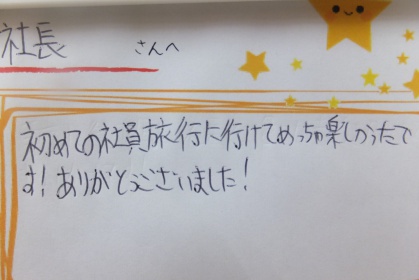 社長 さんへ
初めての社員旅行に行けてめっちゃ楽しかったで
す!ありがとうございました!